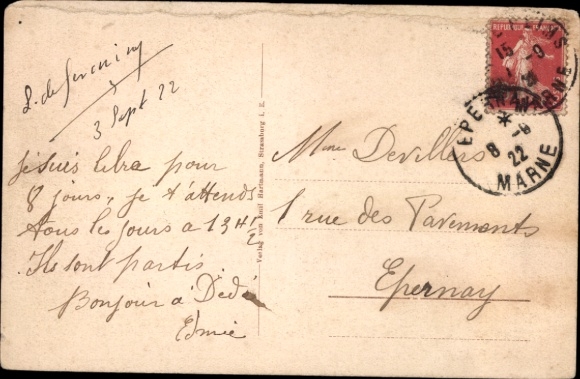 3 Sept 22
je suis libre pour
8 jours, je t'attends
tous les jours à 13H ½
Ils sont partis
Bonjour à Dédé
Edmée
Verlag von Emil Hartmann, Strassburg i. E.
Mme Devillers
1 rue des Pavements
Epernay
REIMS
15 -9
MARNE
EPERNAY
*
8 -9
22
MARNE